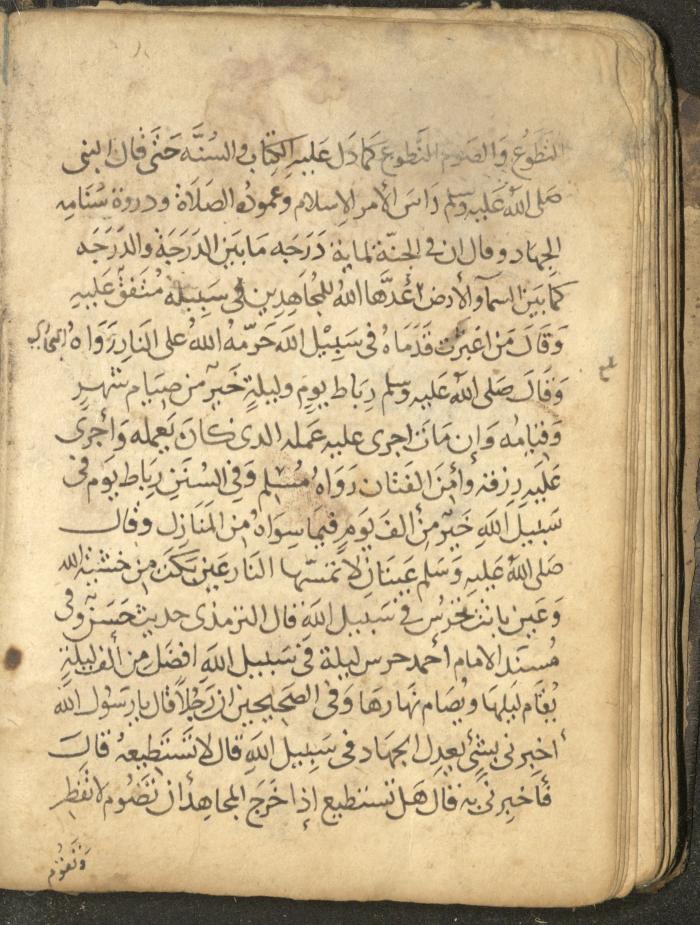 التطوع والصوم التطوع كما دل عليه الكتاب والسنة حتى قال النبي
صلى الله عليه وسلم راس الأمر الاسلام وعموده الصلاة وذروة سنامه
الجهاد وقال ان في الجنة لماية درجه ما بين الدرجة والدرجه
كما بين السما والأرض اعدها الله للمجاهدين في سبيله متفق عليه
وقال من اغبرت قدماه في سبيل الله حرمه الله على النار رواه البخاري
وقال صلى الله عليه وسلم رباط يوم وليلة خير من صيام شهر
وقيامه وإن مات اجرى عليه عمله الذي كان يعمله وأجرى
عليه رزقه وأمن الفتان رواه مسلم وفي السنن رباط يوم في
سبيل الله خير من ألف يوم فيما سواه من المنازل وقال
صلى الله عليه وسلم عينان لا تمسها النار عين بكت من خشية الله
وعين باتت تحرس في سبيل الله قال الترمذي حديث حسن وفي
مسند الامام أحمد حرس ليلة في سبيل الله افضل من ألف ليلة
يقام ليلها ويصام نهارها وفي الصحيحين ان رجلاً قال يا رسول الله
أخبرني بشئ يعدل الجهاد في سبيل الله قال لا تستطيعه قال
فأخبرني به قال هل تستطيع إذا خرج المجاهد أن تصوم لا تفطر
وتقوم